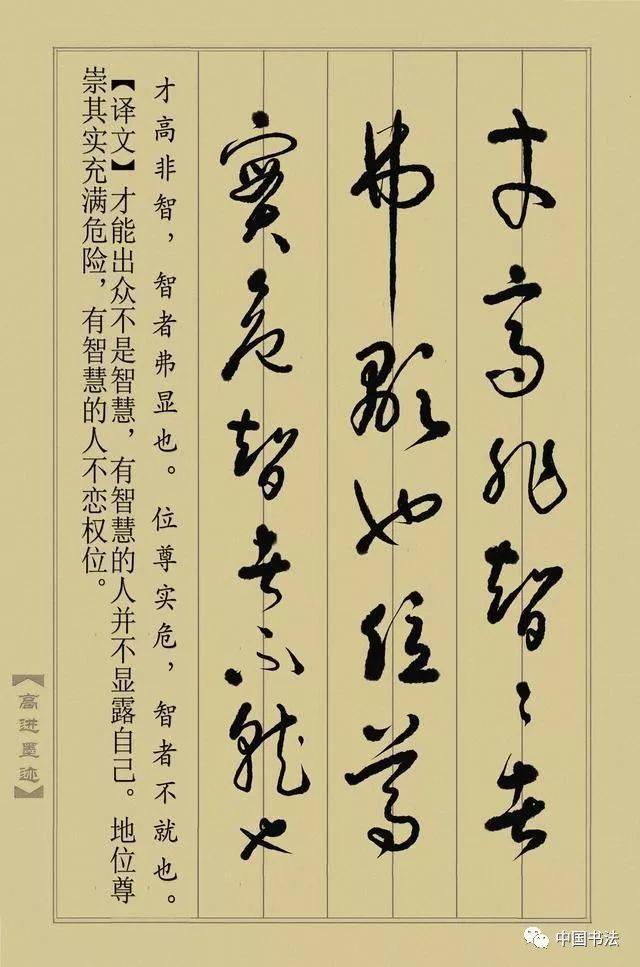 才高非智智者
弗顯也位尊
實危智者不就也
才高非智，智者弗显也。位尊实危，智者不就也。
【译文】才能出众不是智慧，有智慧的人并不显露自己。地位尊
崇其实充满危险，有智慧的人不恋权位。
【高进墨迹】
中国书法